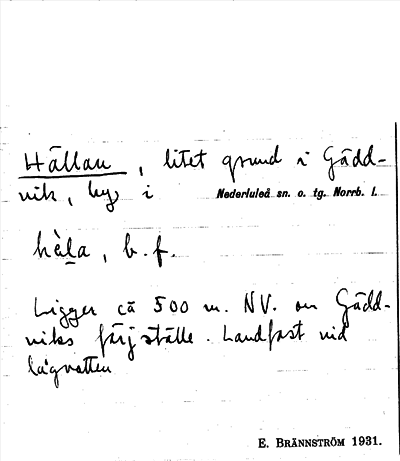 Hällan, litet grund i Gädd-
vik, by i Nederluleå sn. o. tg. Norrb. l.
hä̀l̠a, b. f.
Ligger ca 500 m. NV. om Gädd-
viks färjställe. Landfast vid
lågvatten
E. BRÄNNSTRÖM 1931.